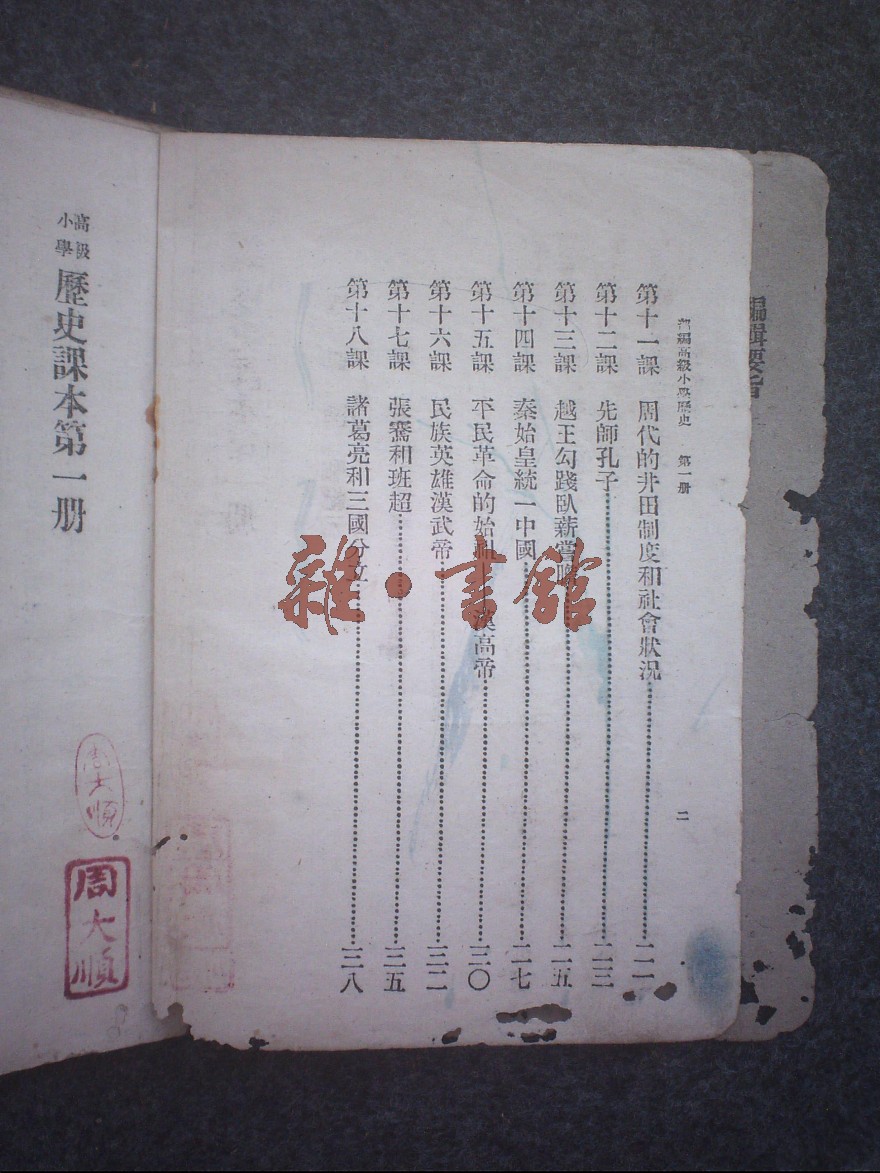 編輯要旨
部編高級小學歷史 第一册
二
第十一課 周代的井田制度和社會狀況 二一
第十二課 先師孔子 二三
第十三課 越王勾踐臥薪嘗 二五
第十四課 秦始皇統一中國 二七
第十五課 平民革命的始祖 漢高帝 三〇
第十六課 民族英雄漢武帝 三二
第十七課 張騫和班超 三五
第十八課 諸葛亮和三國分立 三八
雜·書館
高級
小學
歷史課本第一册
周大順
周大順